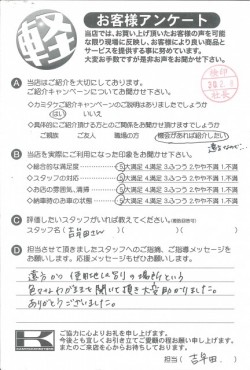 軽
お客様アンケート
当店では、お買い上げ頂いたお客様の声を可能
な限り現場に反映し、お客様により良い商品と
サービスを提供する事に努めています。
大変お手数ですが是非お声をお聞かせ下さい。
A 当店はご紹介を大切にしております。
ご紹介キャンペーンについてお聞かせ下さい。
◇カミタケご紹介キャンペーンのご説明はありましたでしょうか
はい いいえ
◇具体的にご紹介頂ける方とのご関係をお聞かせ頂けますでしょうか
ご親族 ご友人 職場の方 機会があれば紹介したい
B 当店を実際にご利用になった印象をお聞かせ下さい。
◇総合的な満足度 5大満足 4.満足 3.ふつう 2.やや不満 1.不満
◇スタッフの対応 5大満足 4.満足 3.ふつう 2.やや不満 1.不満
◇お店の雰囲気、清掃 5大満足 4.満足 3.ふつう 2.やや不満 1.不満
◇納車時のお車の状態 5大満足 4.満足 3.ふつう 2.やや不満 1.不満
C 評価したいスタッフがいれば教えてください。(複数回答可)
スタッフ名(吉年田さん)
D 担当させて頂きましたスタッフへのご指摘、ご指導メッセージを
お願いします。お褒め頂けるメッセージもお願いします。
遠方かつ使用地は別の場所という
色々なわがままを聞いて頂き大変助かりました。
ありがとうございました。
K
ご協力に心よりお礼を申し上げます。
今後とも宜しくお引き立てご愛顧の程お願い申し上げます。
またのご来店を心からお待ちしております。
担当( 吉年田 )